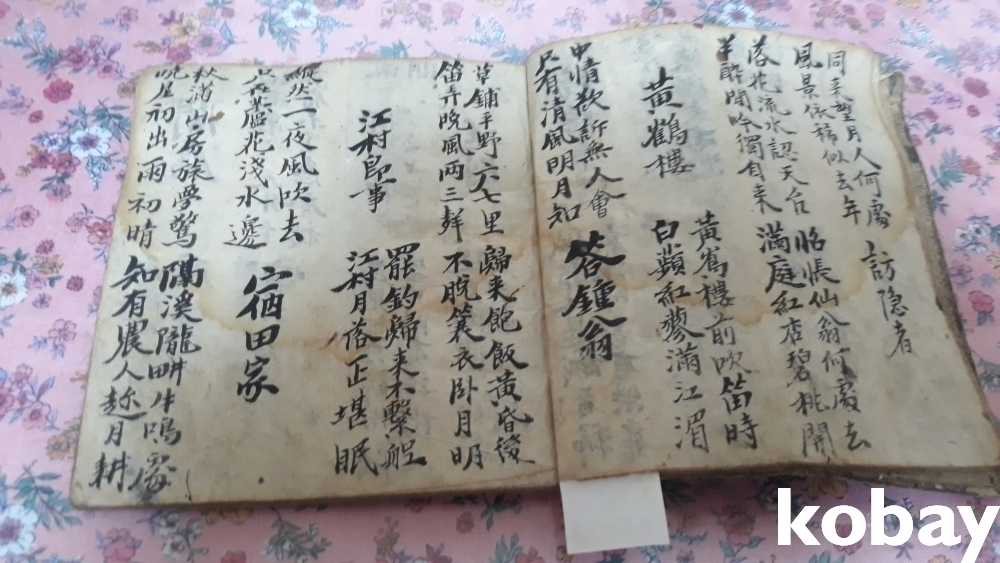 同来望月人何處
風景依稀似去年
訪隱者
落花流水認天台
半醉閒吟獨自来
惆悵仙翁何處去
滿庭紅店碧桃開
黃鶴樓
黃鶴樓前吹笛時
白蘋紅蓼滿江湄
中情欲訴無人會
只有清風明月知
答鍾翁
草鋪平野六七里
笛弄晩風兩三聲
歸来飽飯黃昏後
不脫簑衣卧月明
江村即事
罷釣歸来不繫舡
江村月落正堪眠
縱然一夜風吹去
只在蘆花淺水邊
宿田家
秋滿山房旅夢驚
晩星初出雨初晴
隔溪隴畔牛鳴處
知有農人趂月耕
kobay